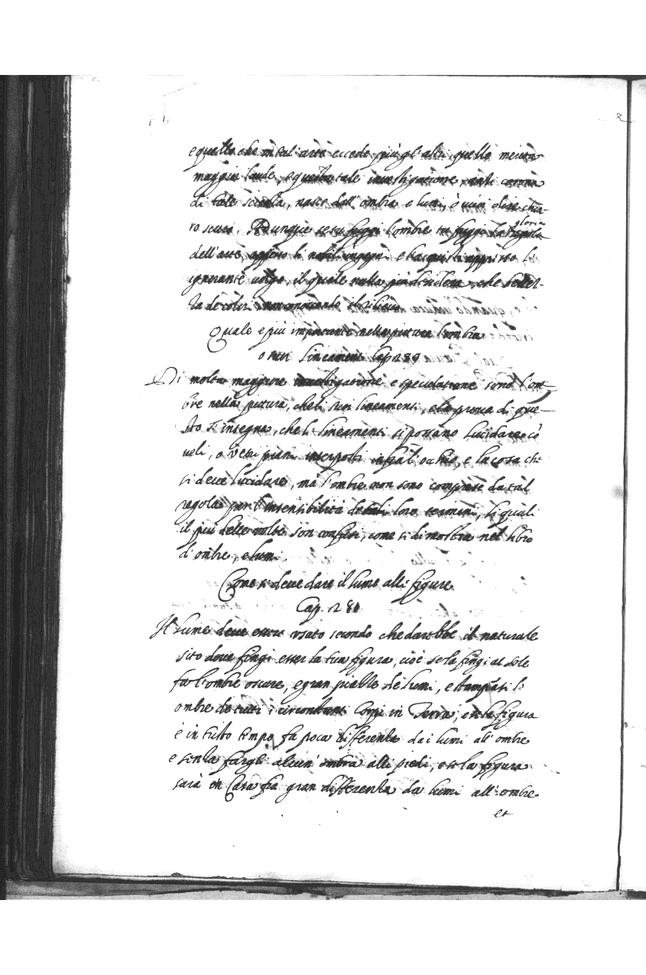 e quello che in tal' arte eccede più gl' altri, quello merita
maggior laude, e questa tale investigatione, anzi corona
di tale scienza, nasce dall' ombre e lumi, o vuoi dire chia
ro scuro. Adunque se tu fuggi l'ombre tu fuggi la gloria
dell'arte, appresso li nobili ingegni e l'acquisti appresso l'
ignorante volgo, il quale nulla più desidera, che bellez
za de colori non conoscendo il rilievo
Quale e più importante nella pittura l'ombra
o suoi lineamenti Cap 289
Di molta maggiore investigatione e speculatione sono l'om
bre nella pittura, che li suoi lineamenti, e la prova di que
sto s'insegna, che li lineamenti si possano lucidare cō
veli, o vetri piani interposti infra l'occhio, e la cosa che
si deve lucidare, ma l'ombre non sono comprese da tal
regola per l'insensibilità de tali loro termini, li quali
il più delle volte son confusi, come si dimostra nel libro
d'ombre, e lumi.
Come si deve dare il lume alle figure
Cap. 280
Il lume deve esser usato secondo che darebbe il naturale
sito dove fingi esser la tua figura, cioè se la fingi al sole
fa l'ombre oscure, e gran piazze de lumi, e stampavi l'
ombre de tutti i circonstanti Corpi in Terra, e se la figura
è in tristo tempo fa poca differenza da i lumi all' ombre
e senza fargli alcun' ombra alli piedi, e se la figura
sarà in Casa fia gran differenza da lumi all' ombre
et